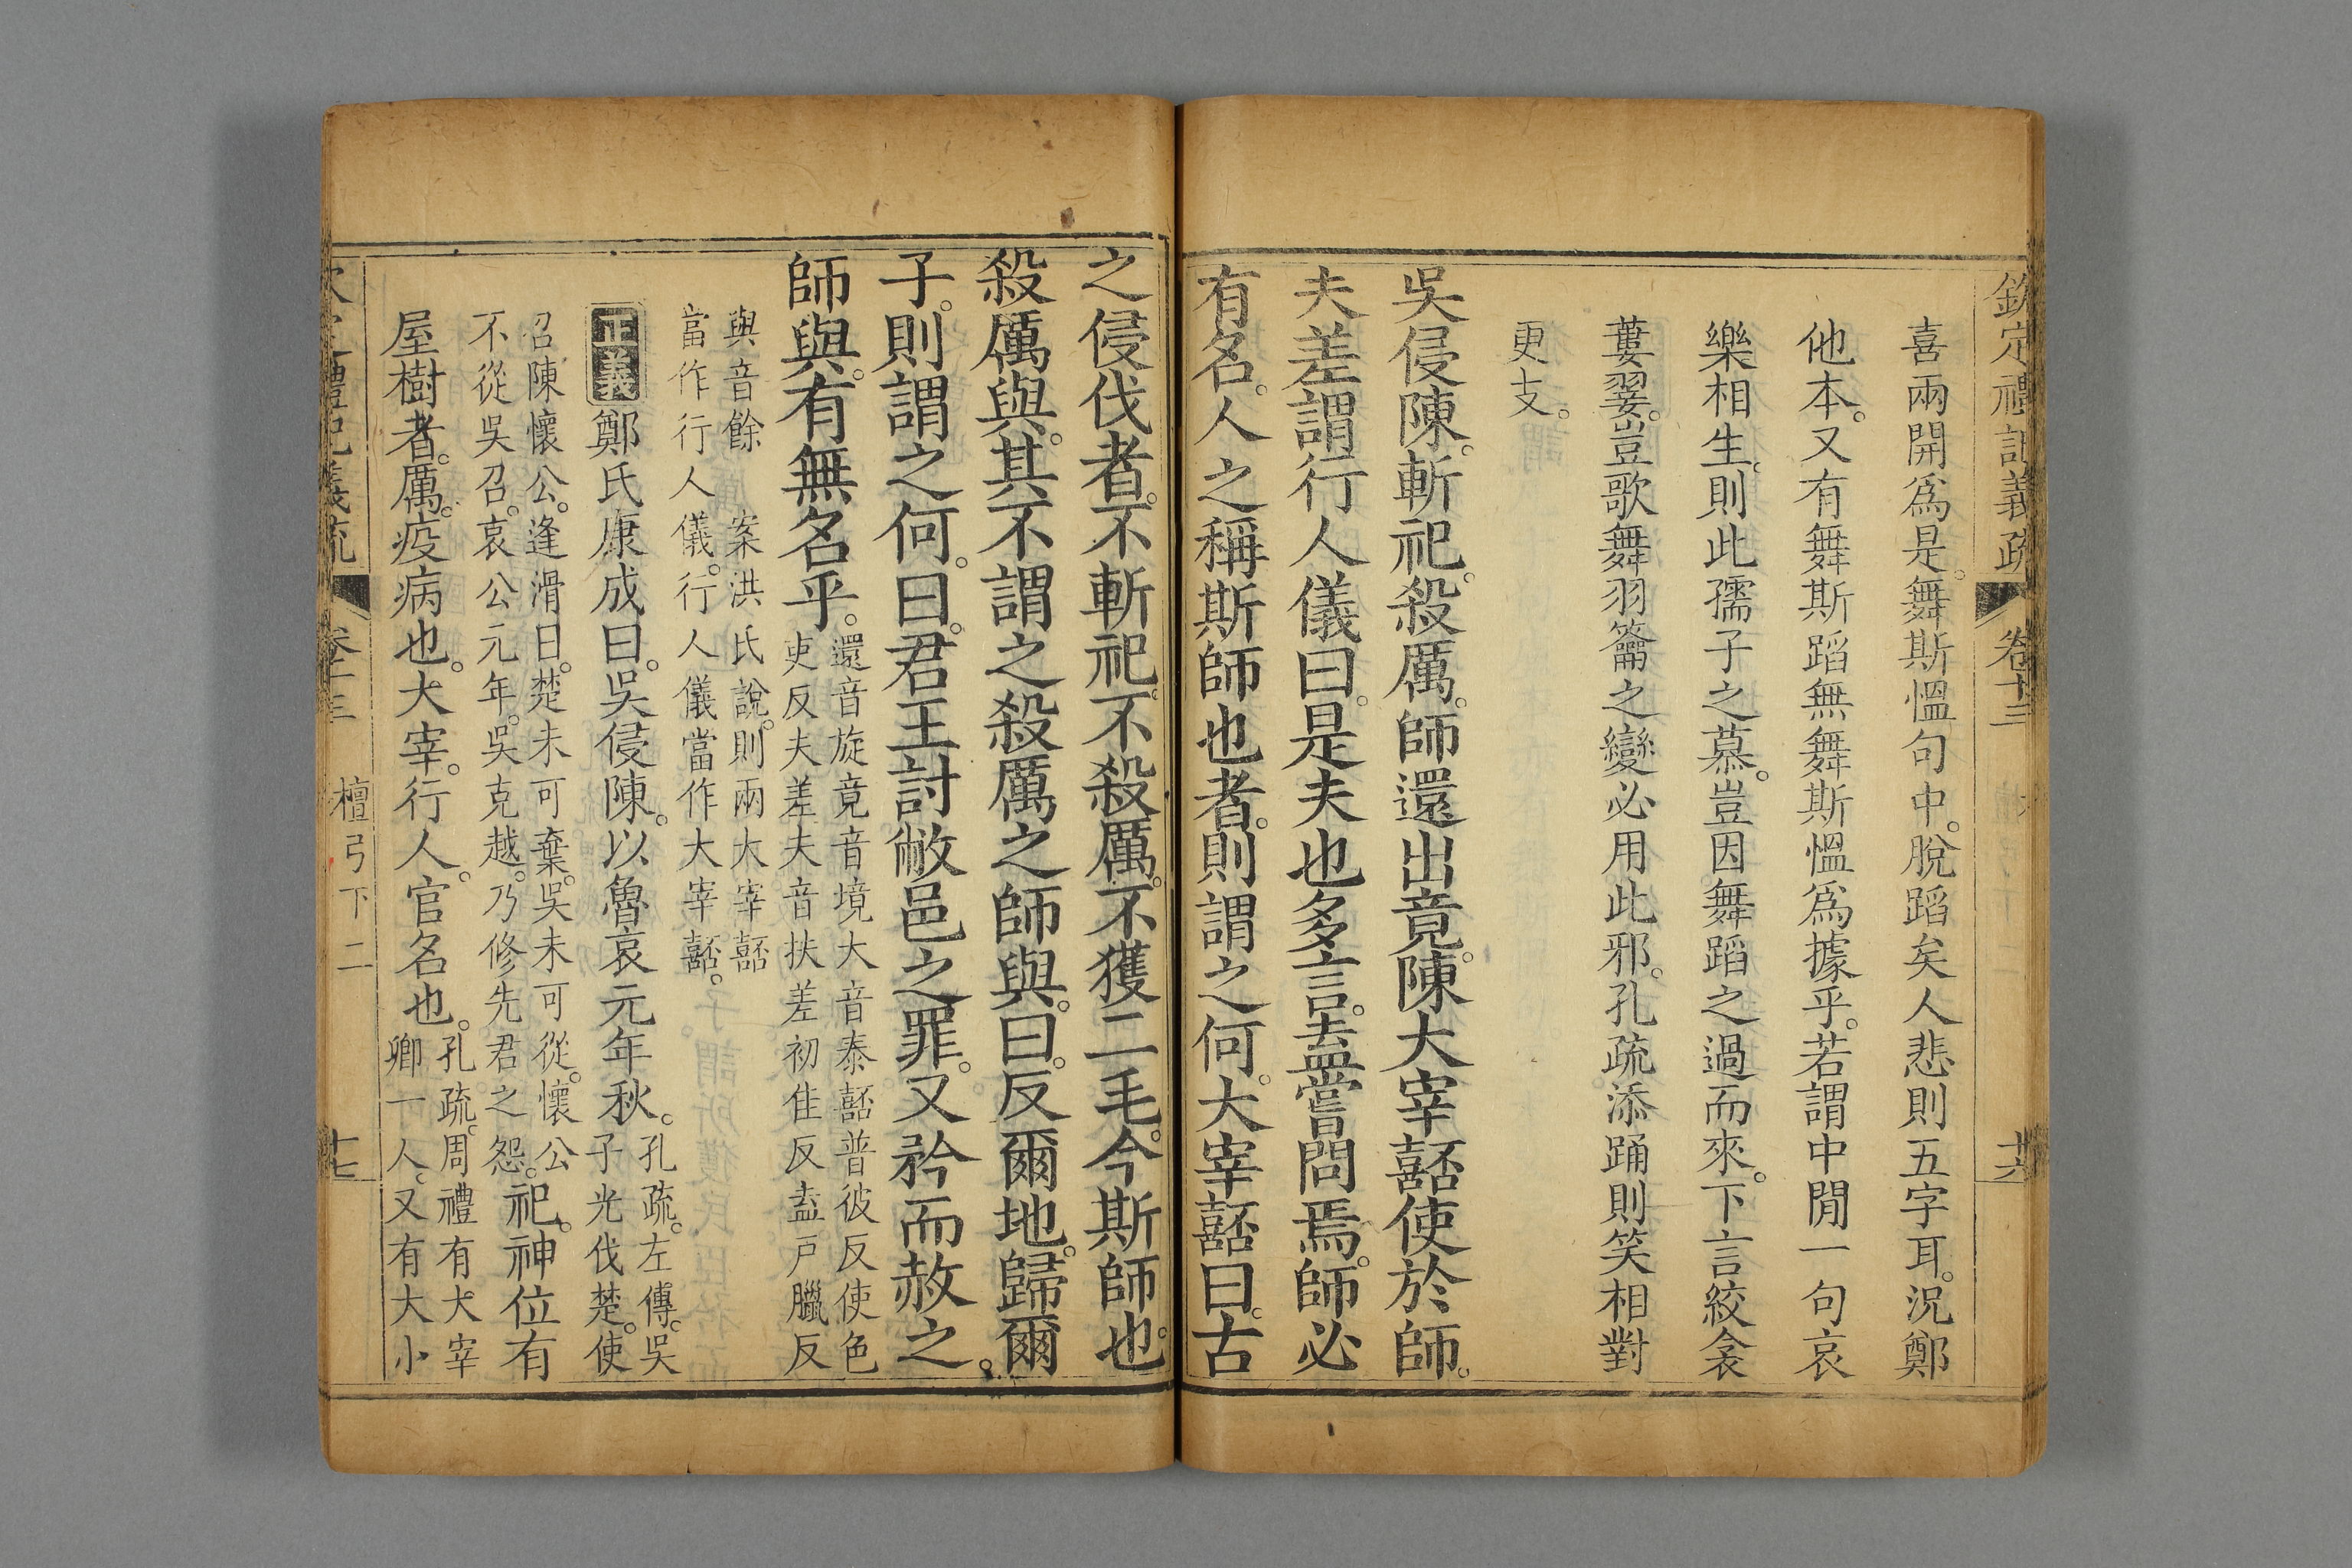 欽定禮記義疏 卷十三 十六
喜兩開爲是。舞斯慍句中。脫蹈矣人悲則五字耳。況鄭
他本。又有舞斯蹈無舞斯慍爲據乎。若謂中閒一句哀
樂相生。則此孺子之慕。豈因舞蹈之過而來。下言絞衾
蔞翣。豈歌舞羽籥之變必用此邪。孔疏添踊則笑相對
更支。
吳侵陳。斬祀。殺厲。師還出竟。陳大宰嚭使於師。
夫差謂行人儀曰。是夫也多言。盍嘗問焉。師必
有名。人之稱斯師也者。則謂之何。大宰嚭曰。古
之侵伐者。不斬祀。不殺厲。不獲二毛。今斯師也。
殺厲與。其不謂之殺厲之師與。曰。反爾地。歸爾
子。則謂之何。曰。君王討敝邑之罪。又矜而赦之。
師與。有無名乎。
還音旋竟音境大音泰嚭普彼反使色
吏反夫差夫音扶差初佳反盍戸臘反
與音餘 案洪氏說。則兩大宰嚭
當作行人儀。行人儀當作大宰嚭。
正義 鄭氏康成曰。吳侵陳。以魯哀元年秋。
孔疏。左傳。吳
子光伐楚。使
召陳懷公。逢滑曰。楚未可棄。吳未可從。懷公
不從吳召。哀公元年。吳克越。乃修先君之怨。
祀。神位有
屋樹者。厲。疫病也。大宰。行人。官名也。
孔疏。周禮有大宰
卿一人。又有大小
欽定禮記義疏 卷十三 檀弓下二 十七